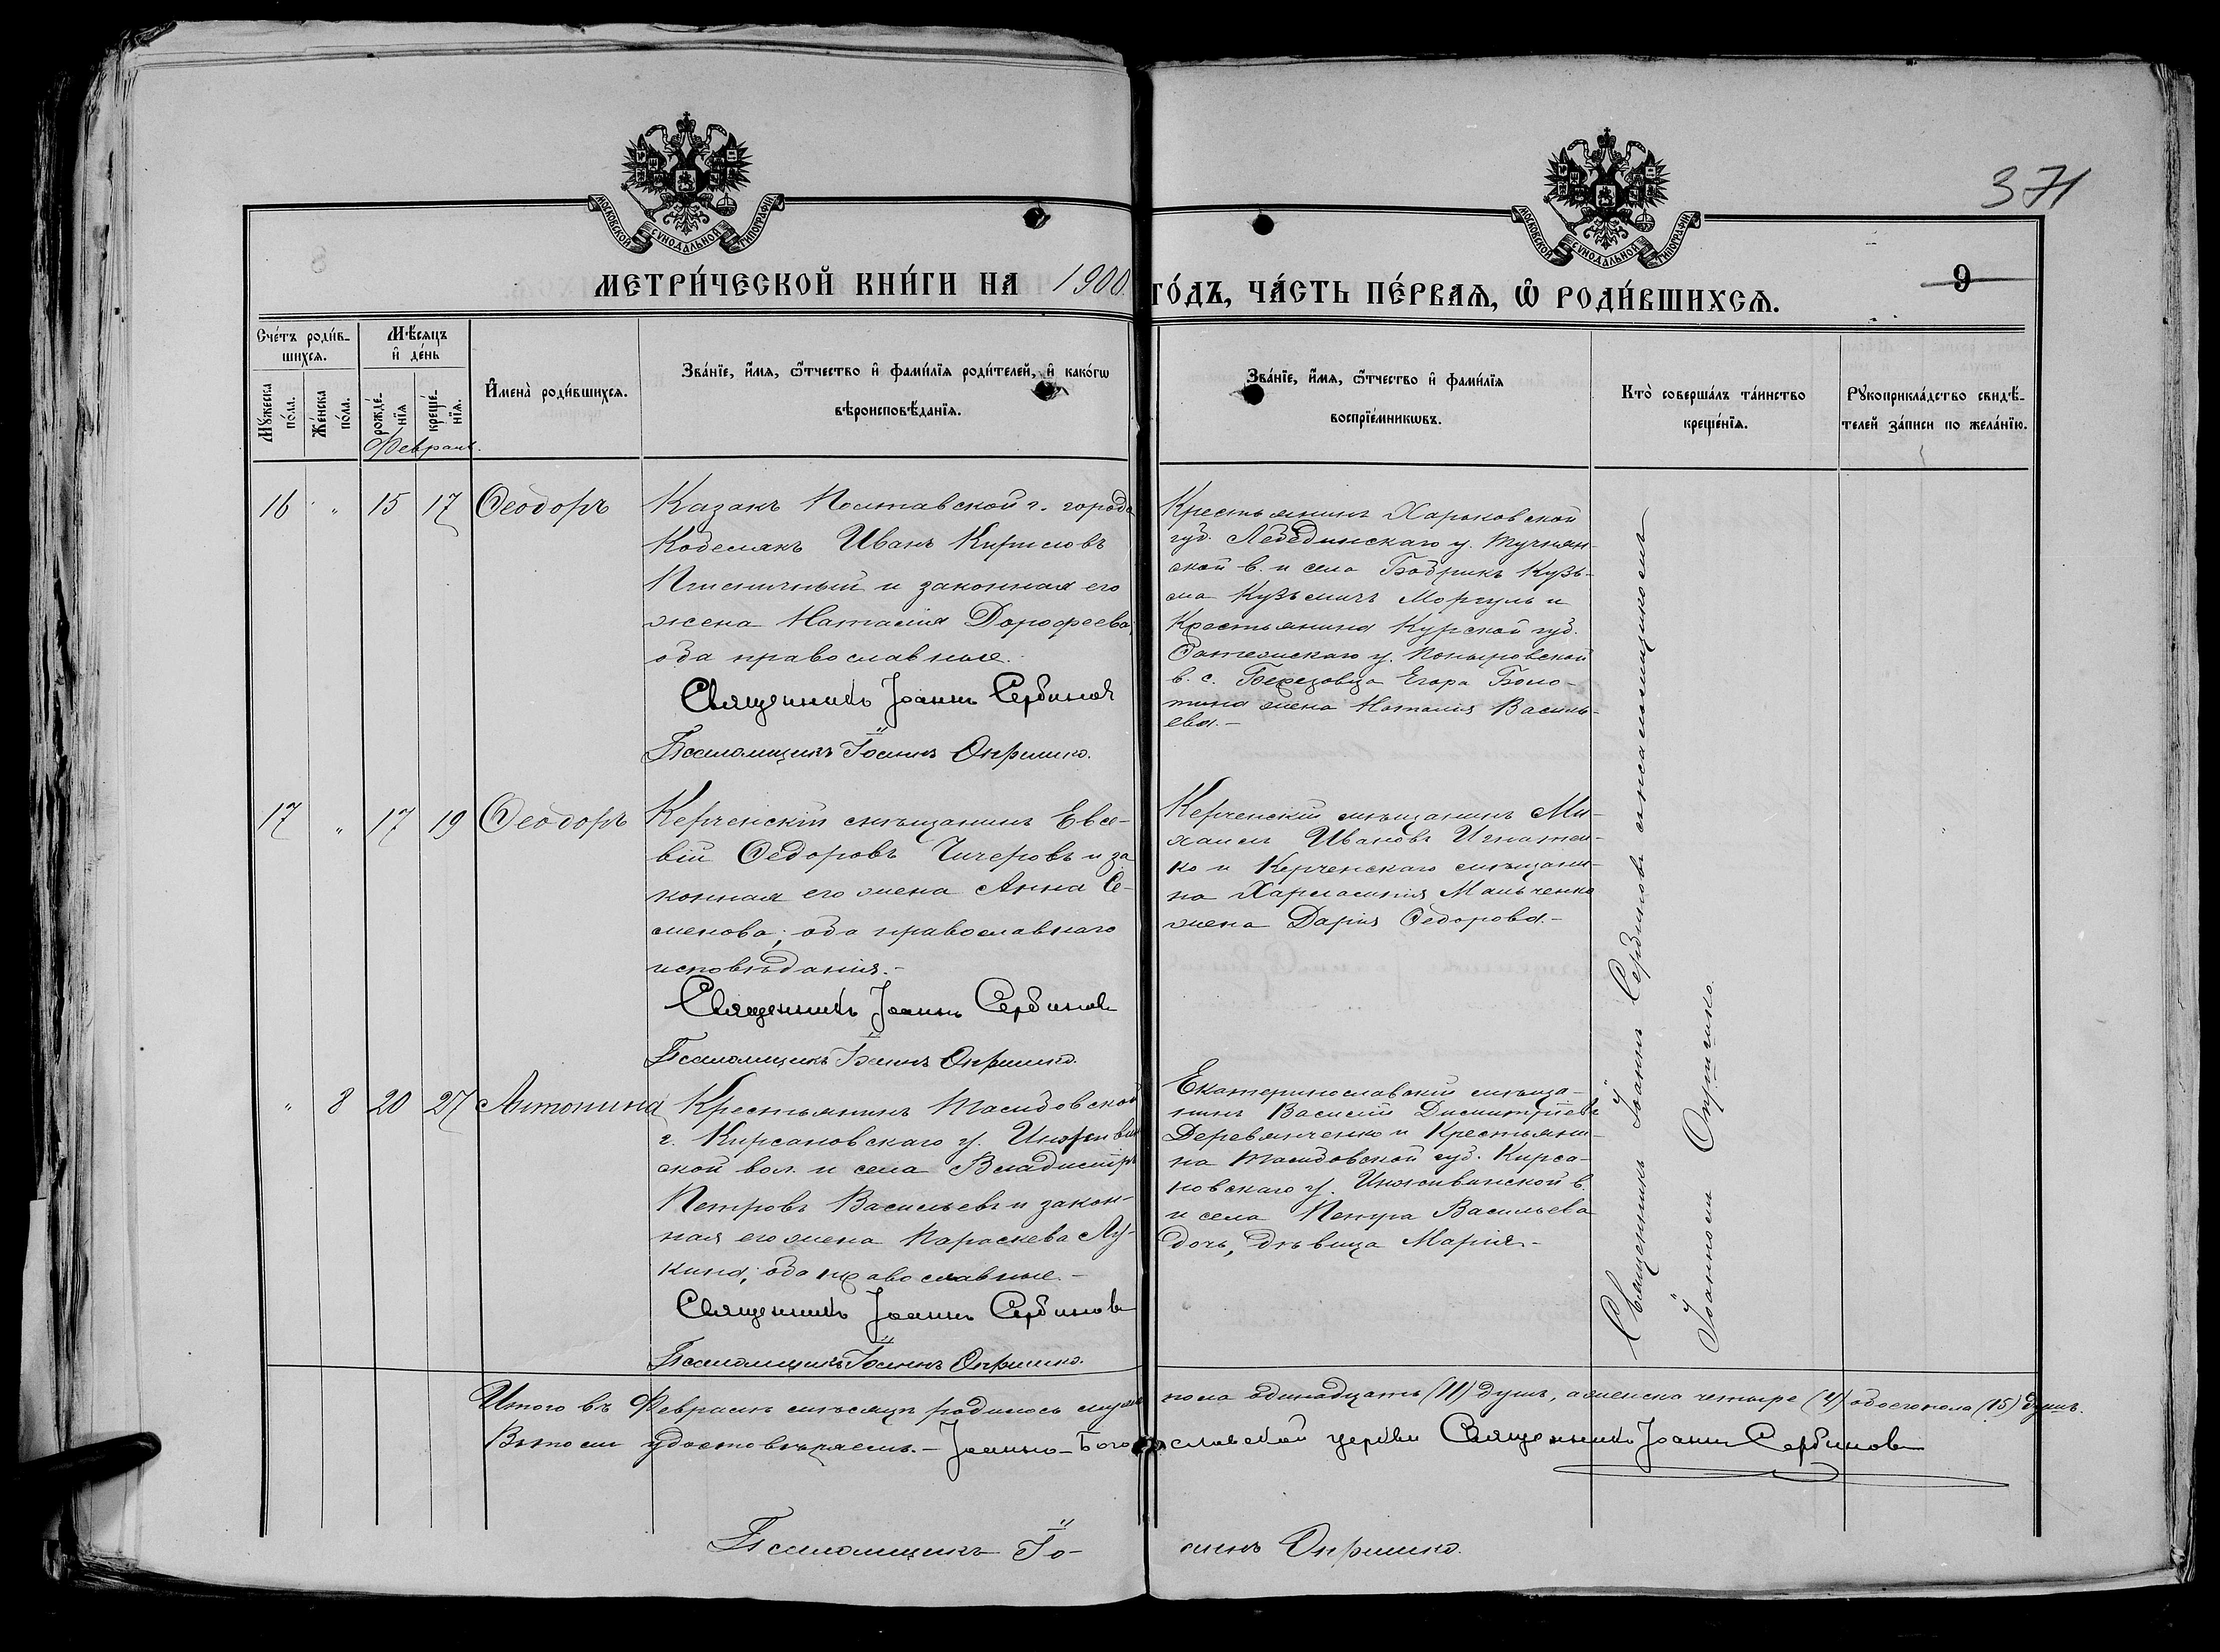 371
МОСКОВСКОЙ СѴНОДАЛЬНОЙ ТИПОГРАФІИ
МОСКОВСКОЙ СѴНОДАЛЬНОЙ ТИПОГРАФІИ
МЕТРИ́ЧЕСКОЙ КНИ́ГИ НА 1900 ГО́ДЪ, ЧА́СТЬ ПЕ́РВАѦ, Ѽ РОДИ́ВШИХСѦ.
9
Сче́тъ роди́в-
шихсѧ.
Мужеска по́ла.
Же́нска по́ла.
Мѣ́сѧцъ
и҆ де́нь
рожде́-
нїѧ
креще́-
нїѧ.
Февраль.
И҆мена̀ роди́вшихсѧ.
Зва́нїе, и҆́мѧ, ѻ҆́тчество и҆ фами́лїѧ роди́телей, и҆ како́гѡ
вѣроисповѣ́данїѧ.
Зва́нїе, и҆́мѧ, ѻ҆́тчество и҆ фами́лїѧ
воспрїе́мникѡвъ.
Кто̀ соверша́лъ та́инство
креще́нїѧ.
Рꙋкоприкла́дство свидѣ́-
телей за́писи по жела́нїю.
16 " 15 17 Ѳеодоръ
Казакъ Полтавской г. города
Кобелякъ Иванъ Кириловъ
Пшеничный и законная его
жена Наталія Дорофеева,
оба православные.
Священникъ Іоаннъ Сербиновъ
Псаломщикъ Іоаннъ Опришко.
Крестьянинъ Харьковской
губ. Лебединскаго у. Тучнян-
ской в. и села Бобрикъ Кузь-
ма Кузьмичъ Моргуль и
Крестьянина Курской губ.
Фатежскаго у. Поныровской
в. с. Березовца Егора Боло-
тина жена Наталія Василь-
ева.-
17 " 17 19 Ѳеодоръ
Керченскій мѣщанинъ Евсе-
вій Ѳедоровъ Чичеровъ и за
конная его жена Анна Се-
менова; оба православнаго
исповѣданія.-
Священникъ Іоаннъ Сербиновъ
Псаломщикъ Іоаннъ Опришко.
Керченскій мѣщанинъ Ми-
хаилъ Ивановъ Игнатен-
ко и Керченскаго мѣщани-
на Харлампія Мальченко
жена Дарія Ѳедорова.-
" 8 20 27 Антонина
Крестьянинъ Тамбовской
г. Кирсановскаго у. Инжавин
ской вол. и села Владиміръ
Петровъ Васильевъ и закон-
ная его жена Параскева Лу-
кина; оба православные.-
Священникъ Іоаннъ Сербиновъ
Псаломщикъ Іоаннъ Опришко.
Екатеринославскій мѣща-
нинъ Василій Димитріевъ
Деревянченко и Крестьяни-
на Тамбовской губ. Кирса-
новскаго у. Инжавинской в.
и села Петра Васильева
дочь, дѣвица Марія.-
Священникъ Іоаннъ Сербиновъ съ псаломщикомъ
Іоанномъ Опришко.
Итого въ Февралѣ мѣсяцѣ родилось муж. пола одинадцать (11) душъ, а женска четыре (4) обоего пола (15) душъ.
Въ томъ удостовѣряемъ.- Іоанно-Богословской церкви Священникъ Іоаннъ Сербиновъ
Псаломщикъ Іоаннъ Опришко.